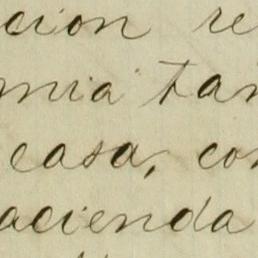 cion re
mia tan
casa, con
acienda